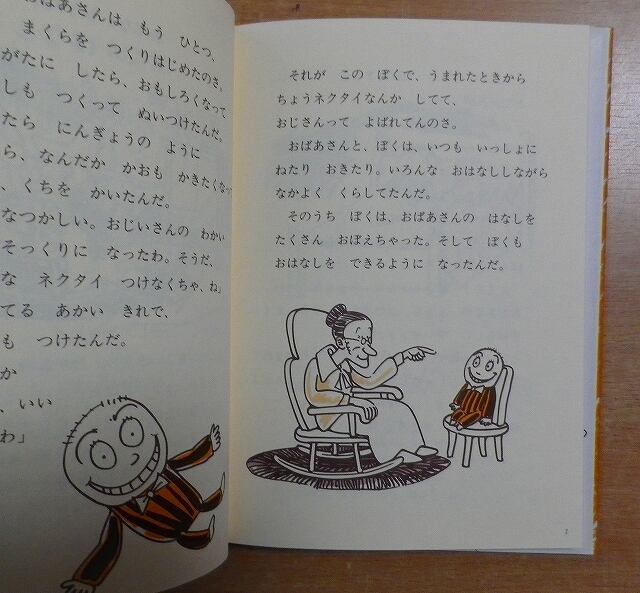 おばあさんは　もう　ひとつ、
まくらを　つくりはじめたのさ。
がたに　したら、おもしろくなって
しも　つくって　ぬいつけたんだ。
たら　にんぎょうの　ように
ら、なんだか　かおも　かきたくなっ
、くちを　かいたんだ。
なつかしい。おじいさんの　わかい
そっくりに　なったわ。そうだ、
な　ネクタイ　つけなくちゃ、ね」
てる　あかい　きれで、
も　つけたんだ。
か
、いい
わ」
それが　この　ぼくで、うまれたときから
ちょうネクタイなんか　してて、
おじさんって　よばれてんのさ。
おばあさんと、ぼくは、いつも　いっしょに
ねたり　おきたり。いろんな　おはなししながら
なかよく　くらしてたんだ。
そのうち　ぼくは、おばあさんの　はなしを
たくさん　おぼえちゃった。そして　ぼくも
おはなしを　できるように　なったんだ。